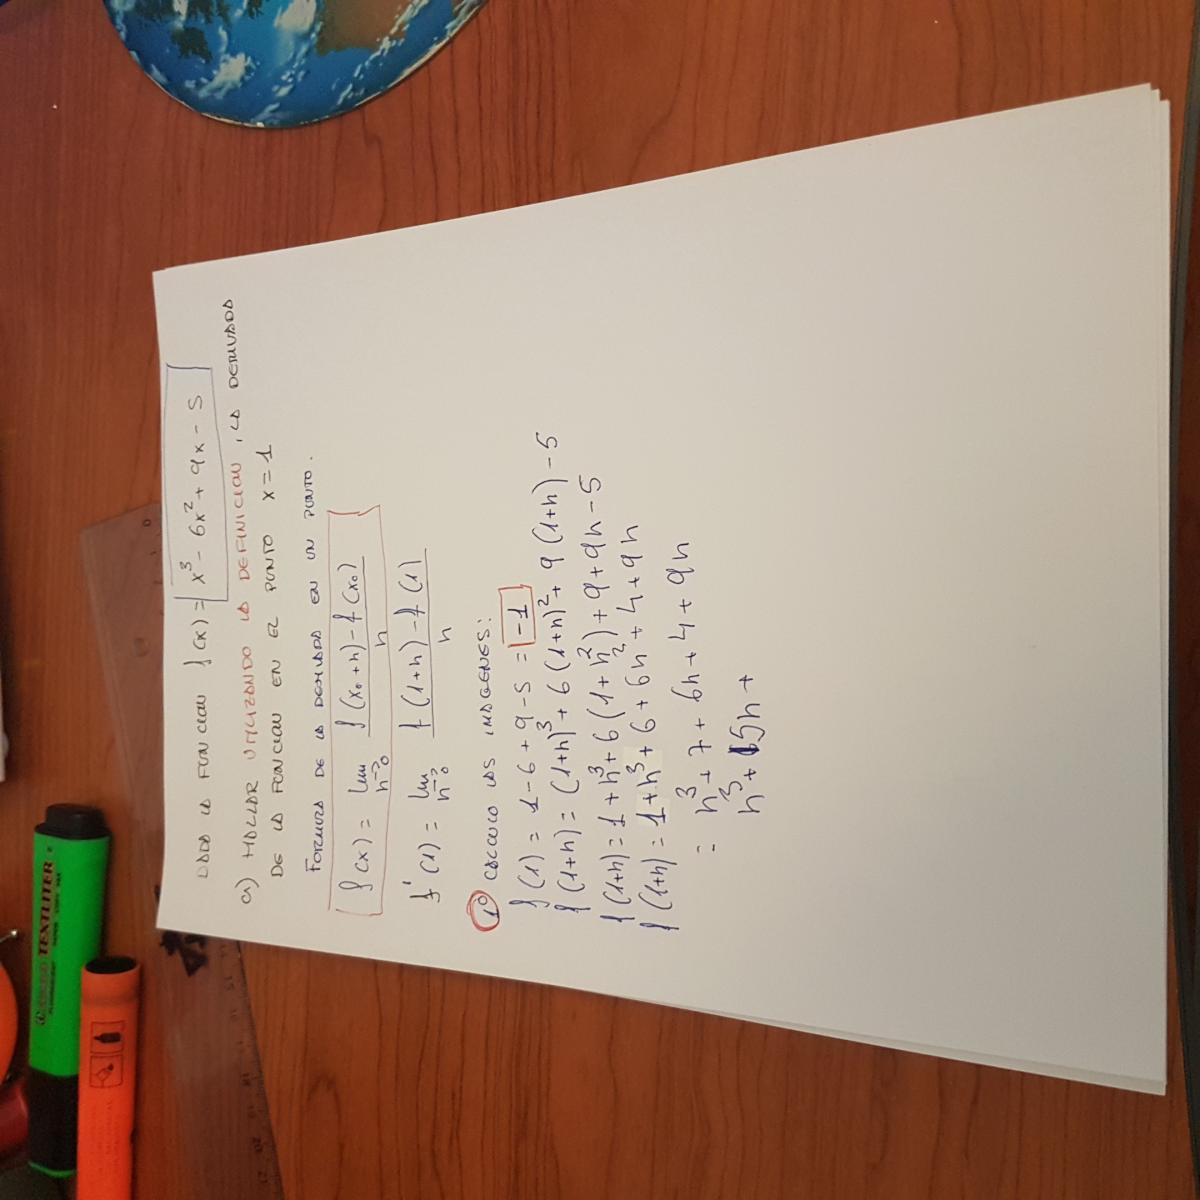 DADA LA FUNCION f(x) = x³ - 6x² + 9x - 5
a) HALLAR UTILIZANDO LA DEFINICION, LA DERIVADA
DE LA FUNCION EN EL PUNTO x = 1
FORMULA DE LA DERIVADA EN UN PUNTO.
f(x) = lim h→0 f(x₀+h) - f(x₀) / h
f'(1) = lim h→0 f(1+h) - f(1) / h
1º CALCULO LAS IMAGENES:
f(1) = 1 - 6 + 9 - 5 = -1
f(1+h) = (1+h)³ + 6(1+h)² + 9(1+h) - 5
f(1+h) = 1 + h³ + 6(1+h²) + 9 + 9h - 5
f(1+h) = 1 + h³ + 6 + 6h² + 4 + 9h
= h³ + 7 + 6h + 4 + 9h
h³ + 15h +
TEXTLITER